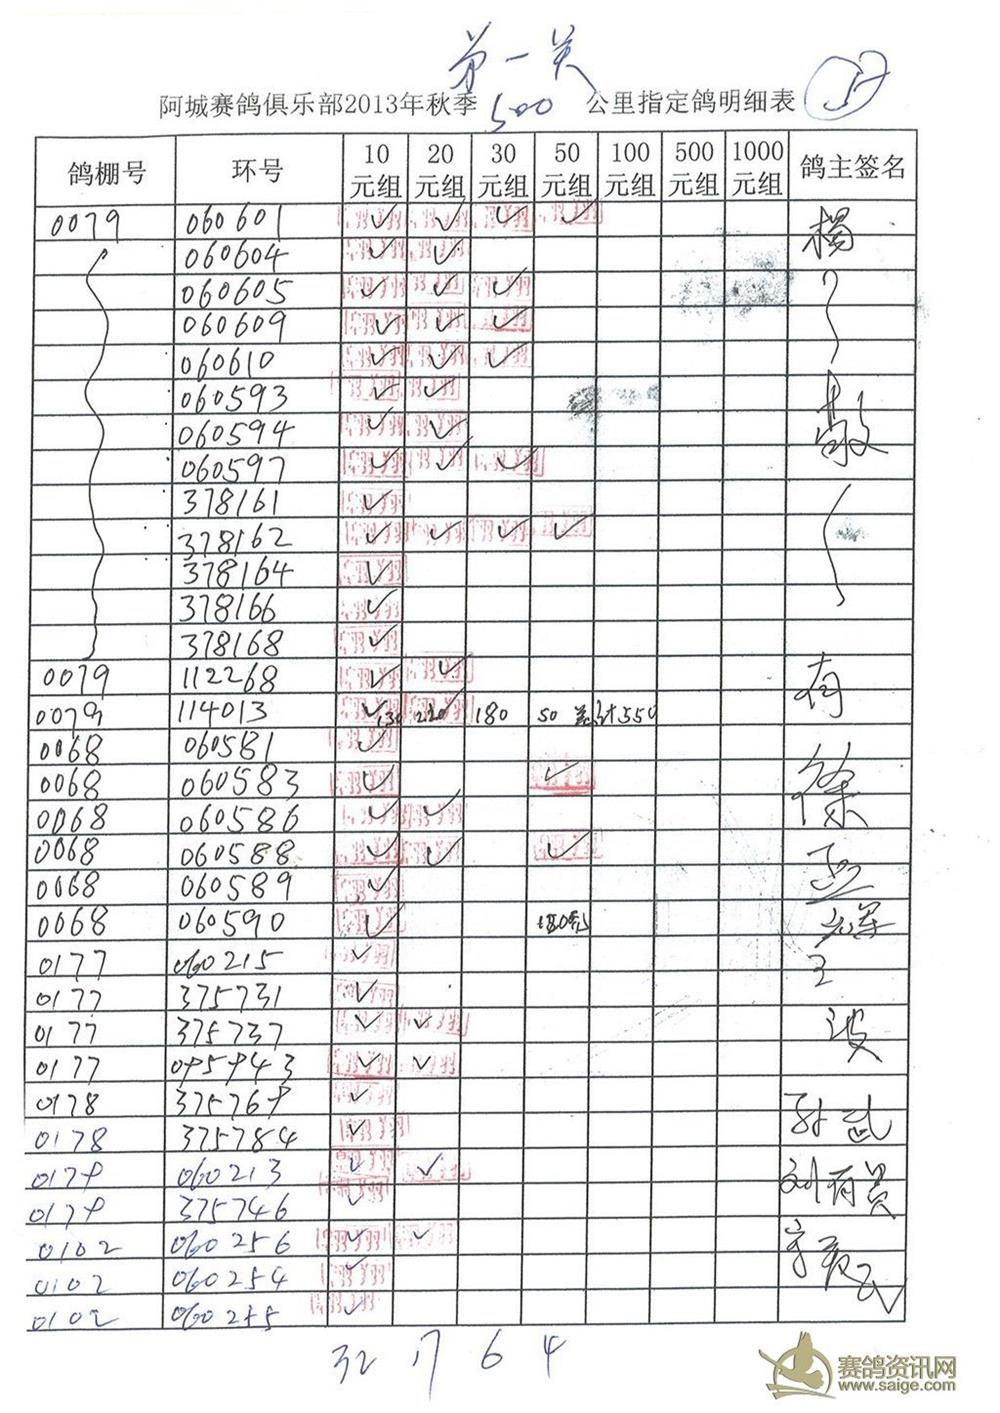 第一关
阿城赛鸽俱乐部2013年秋季 500 公里指定鸽明细表
鸽棚号 环号 10元组 20元组 30元组 50元组 100元组 500元组 1000元组 鸽主签名
0079 060601 ✓ ✓ ✓ ✓ 杨
060604 ✓ ✓
060605 ✓ ✓ ✓
060609 ✓ ✓ ✓
060610 ✓ ✓ ✓
060593 ✓ ✓
060594 ✓ ✓
060597 ✓ ✓ ✓
378161 ✓
378162 ✓ ✓ ✓ ✓
378164 ✓
378166 ✓
378168 ✓
0079 112268 ✓ ✓ 有
0079 114013 ✓ 130 220 180 50 计550
0068 060581 ✓
0068 060583 ✓ ✓ 徐
0068 060586 ✓ ✓
0068 060588 ✓ ✓ ✓
0068 060589 ✓
0068 060590 ✓
0177 060215 ✓ 王
0177 375731 ✓
0177 375737 ✓ ✓ 波
0177 095943 ✓ ✓
0178 375769 ✓ 孙武
0178 375784 ✓
0179 060213 ✓ ✓ 刘有
0179 375746 ✓
0102 060256 ✓ ✓
0102 060254 ✓
0102 060255 ✓
32 17 6 4
赛鸽资讯网
www.saige.com